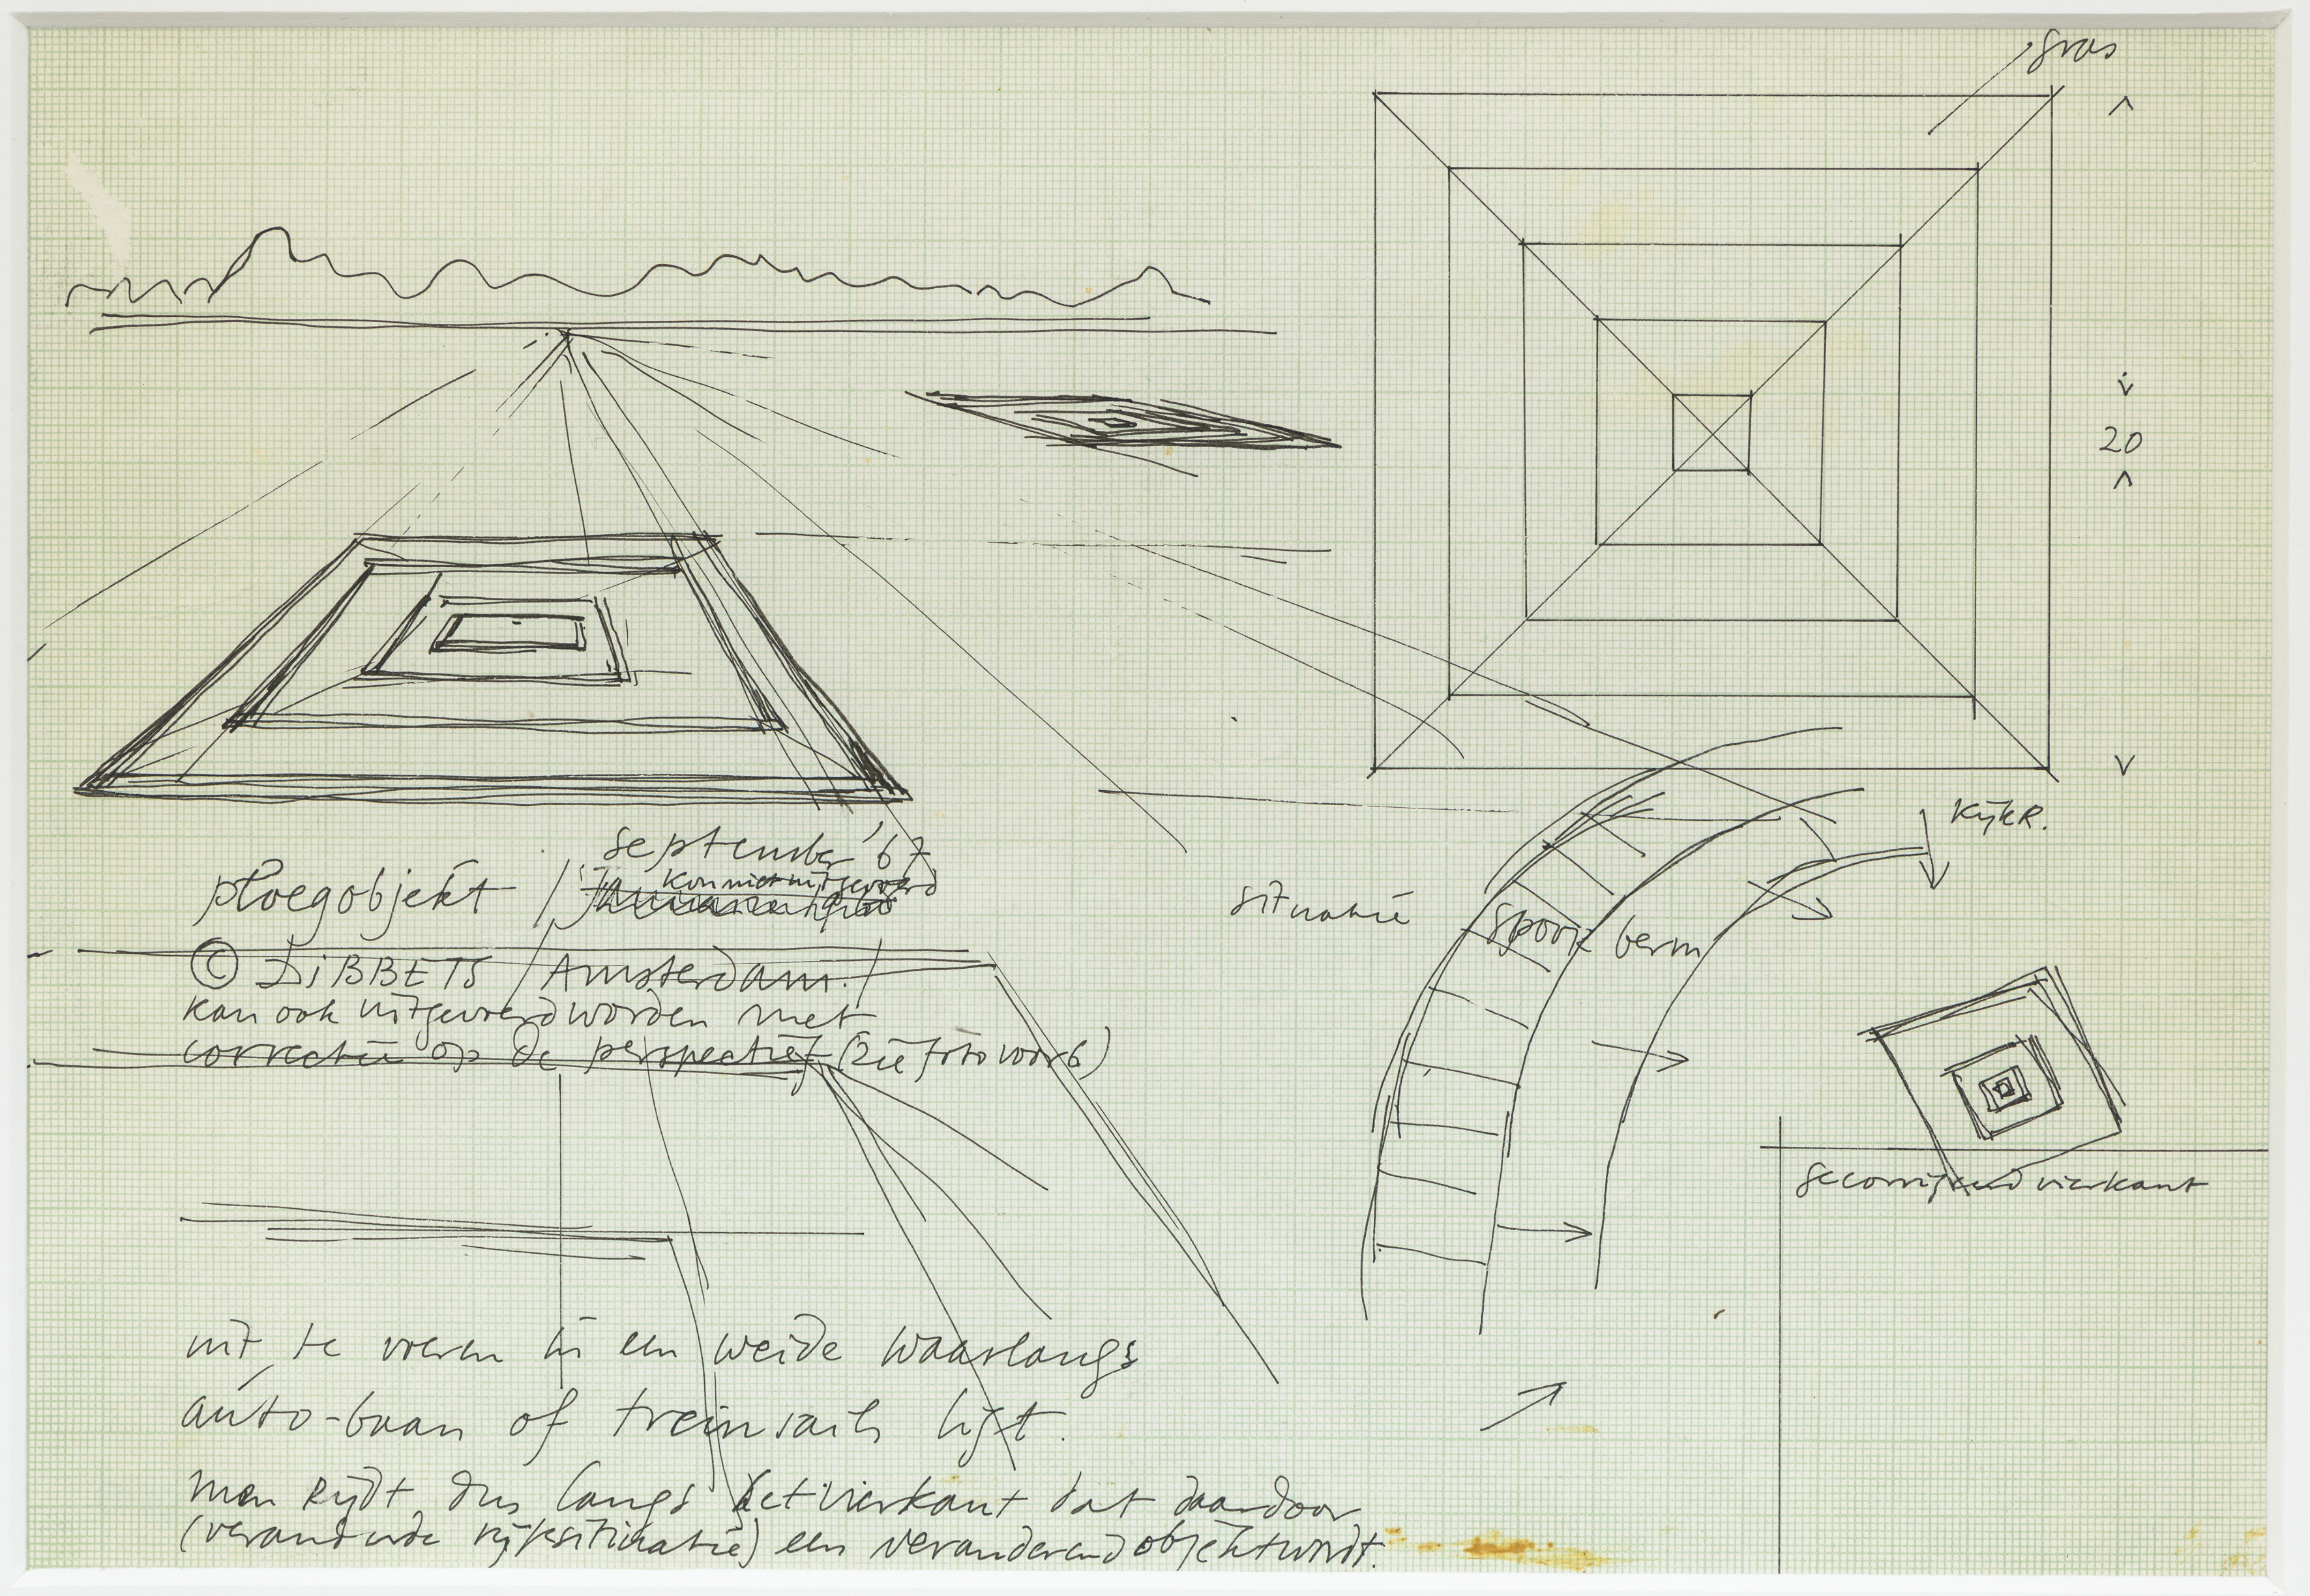 gras
20
september '67
kon niet uitgevoerd
ploegobjekt /
© DiBBETS / Amsterdam. /
kan ook uitgevoerd worden met
correctie op de perspectief (zie foto voorb)
kijkR.
situatie
spoor berm
gecorrigeerd vierkant
uit te voeren in een weide waarlangs
auto-baan of treinrails ligt.
men Rijdt dus langs het vierkant dat daardoor
(veranderde kijksituatie) een veranderend objekt wordt.